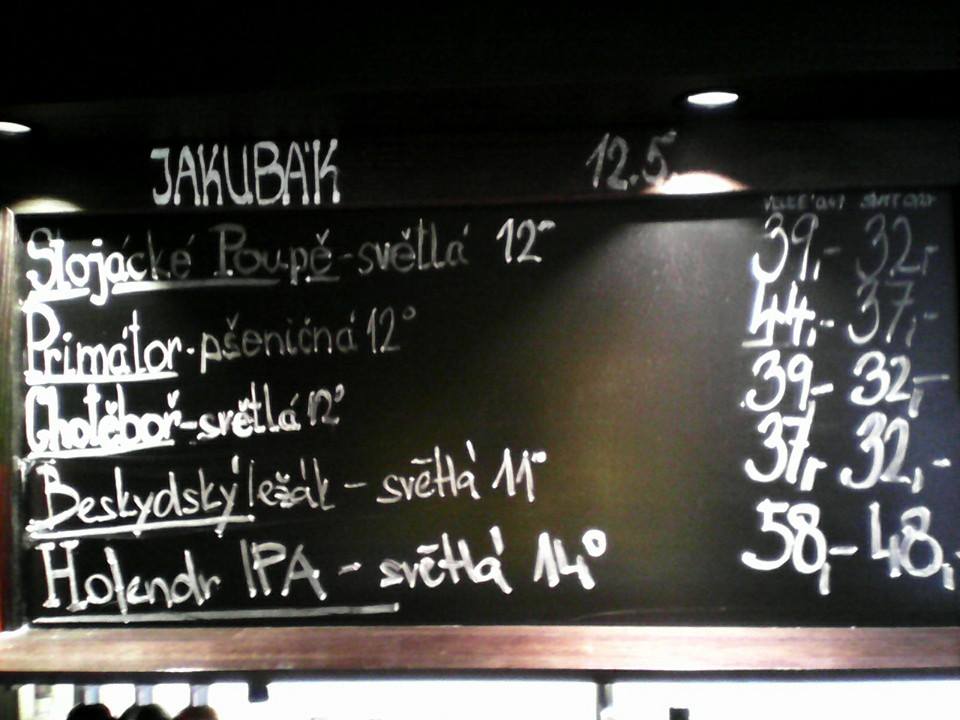 JAKUBÁK 12.5.
Stojácké Poupě - světlá 12° 39,- 32,-
Primátor - pšeničná 12° 44,- 37,-
Chotěboř - světlá 12° 39,- 32,-
Beskydský ležák - světlá 11° 37,- 32,-
Holendr IPA - světlá 14° 58,- 48,-